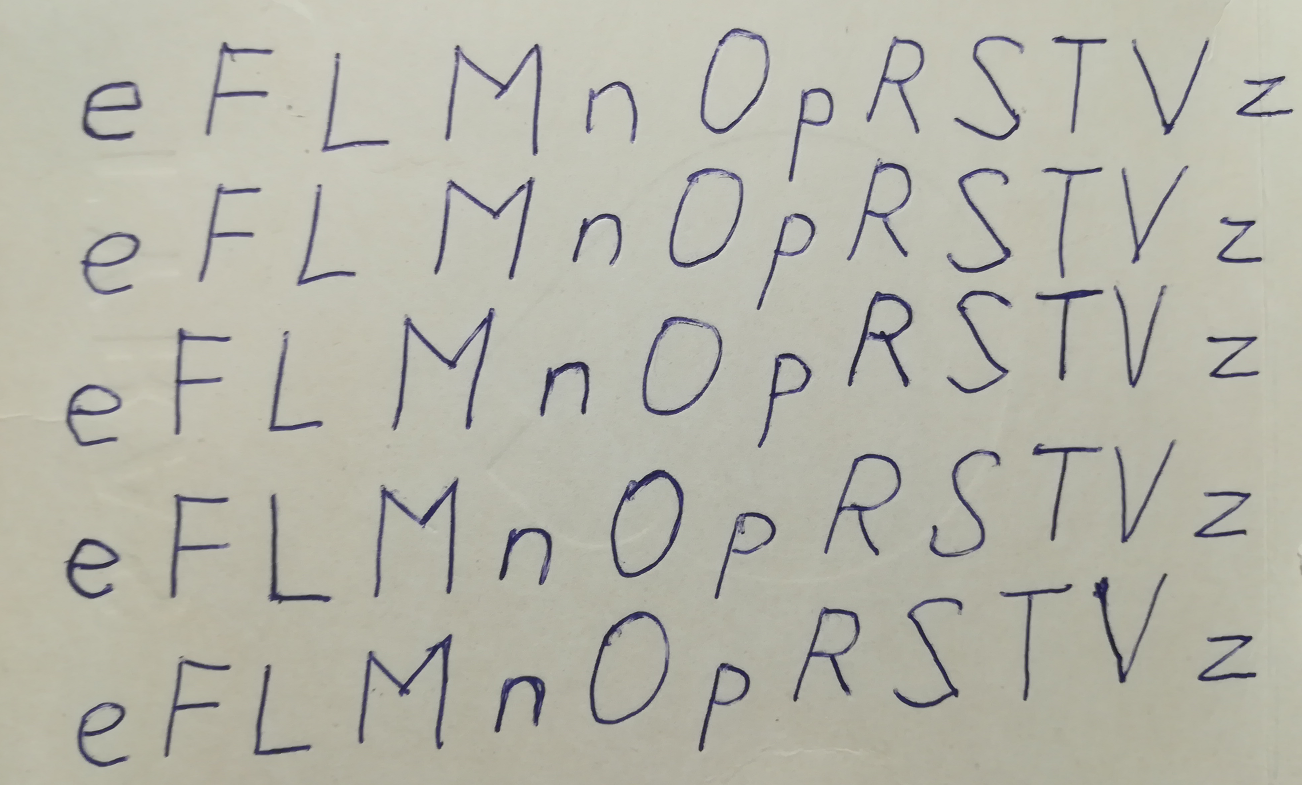 e F L M n O p R S T V z
e F L M n O p R S T V z
e F L M n O p R S T V z
e F L M n O p R S T V z
e F L M n O p R S T V z